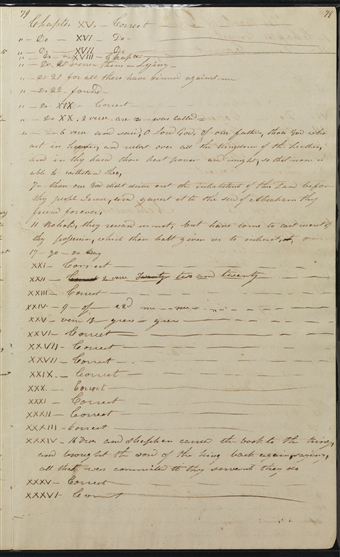 79 78
Chapter XV - Correct
" - Do - XVI - Do -
" - Do - XVII - Do -
" - Do - XVIII - Chapter
" - 20. 21 verse them - lying -
" - 22. 21 for all these have sinned against -
" - 22. found -
" - 20 XIX - Correct
" - 20 XX. 2 verse are 2 - was called -
6 verse and said, O Lord God, of our father, thou God who
art in heaven, and rulest over all the Kingdoms of the heathen
and in thy hand thou hast power and might, so that none is
able to withstand thee,
7 - thou our God didst drive out the inhabitants of this Land before
thy people Israel, and gavest it to the seed of Abraham thy
friend forever,
11 Behold, they reward us not, but have come to cast us out of
thy possession, which thou hast given us to inherit,
17 - go - to day
XXI - Correct
XXII - 2 verse Twenty two and twenty
XXIII - Correct
XXIV - 9 - of
XXV - verse
XXVI - Correct
XXVII - Correct
XXVIII - Correct
XXIX - Correct
XXX - Correct
XXXI - Correct
XXXII - Correct
XXXIII - Correct
XXXIV - 16 And Shaphan carried the book to the king,
and brought the word of the king back again, saying,
all that was committed to thy servants they do
XXXV - Correct
XXXVI - Correct